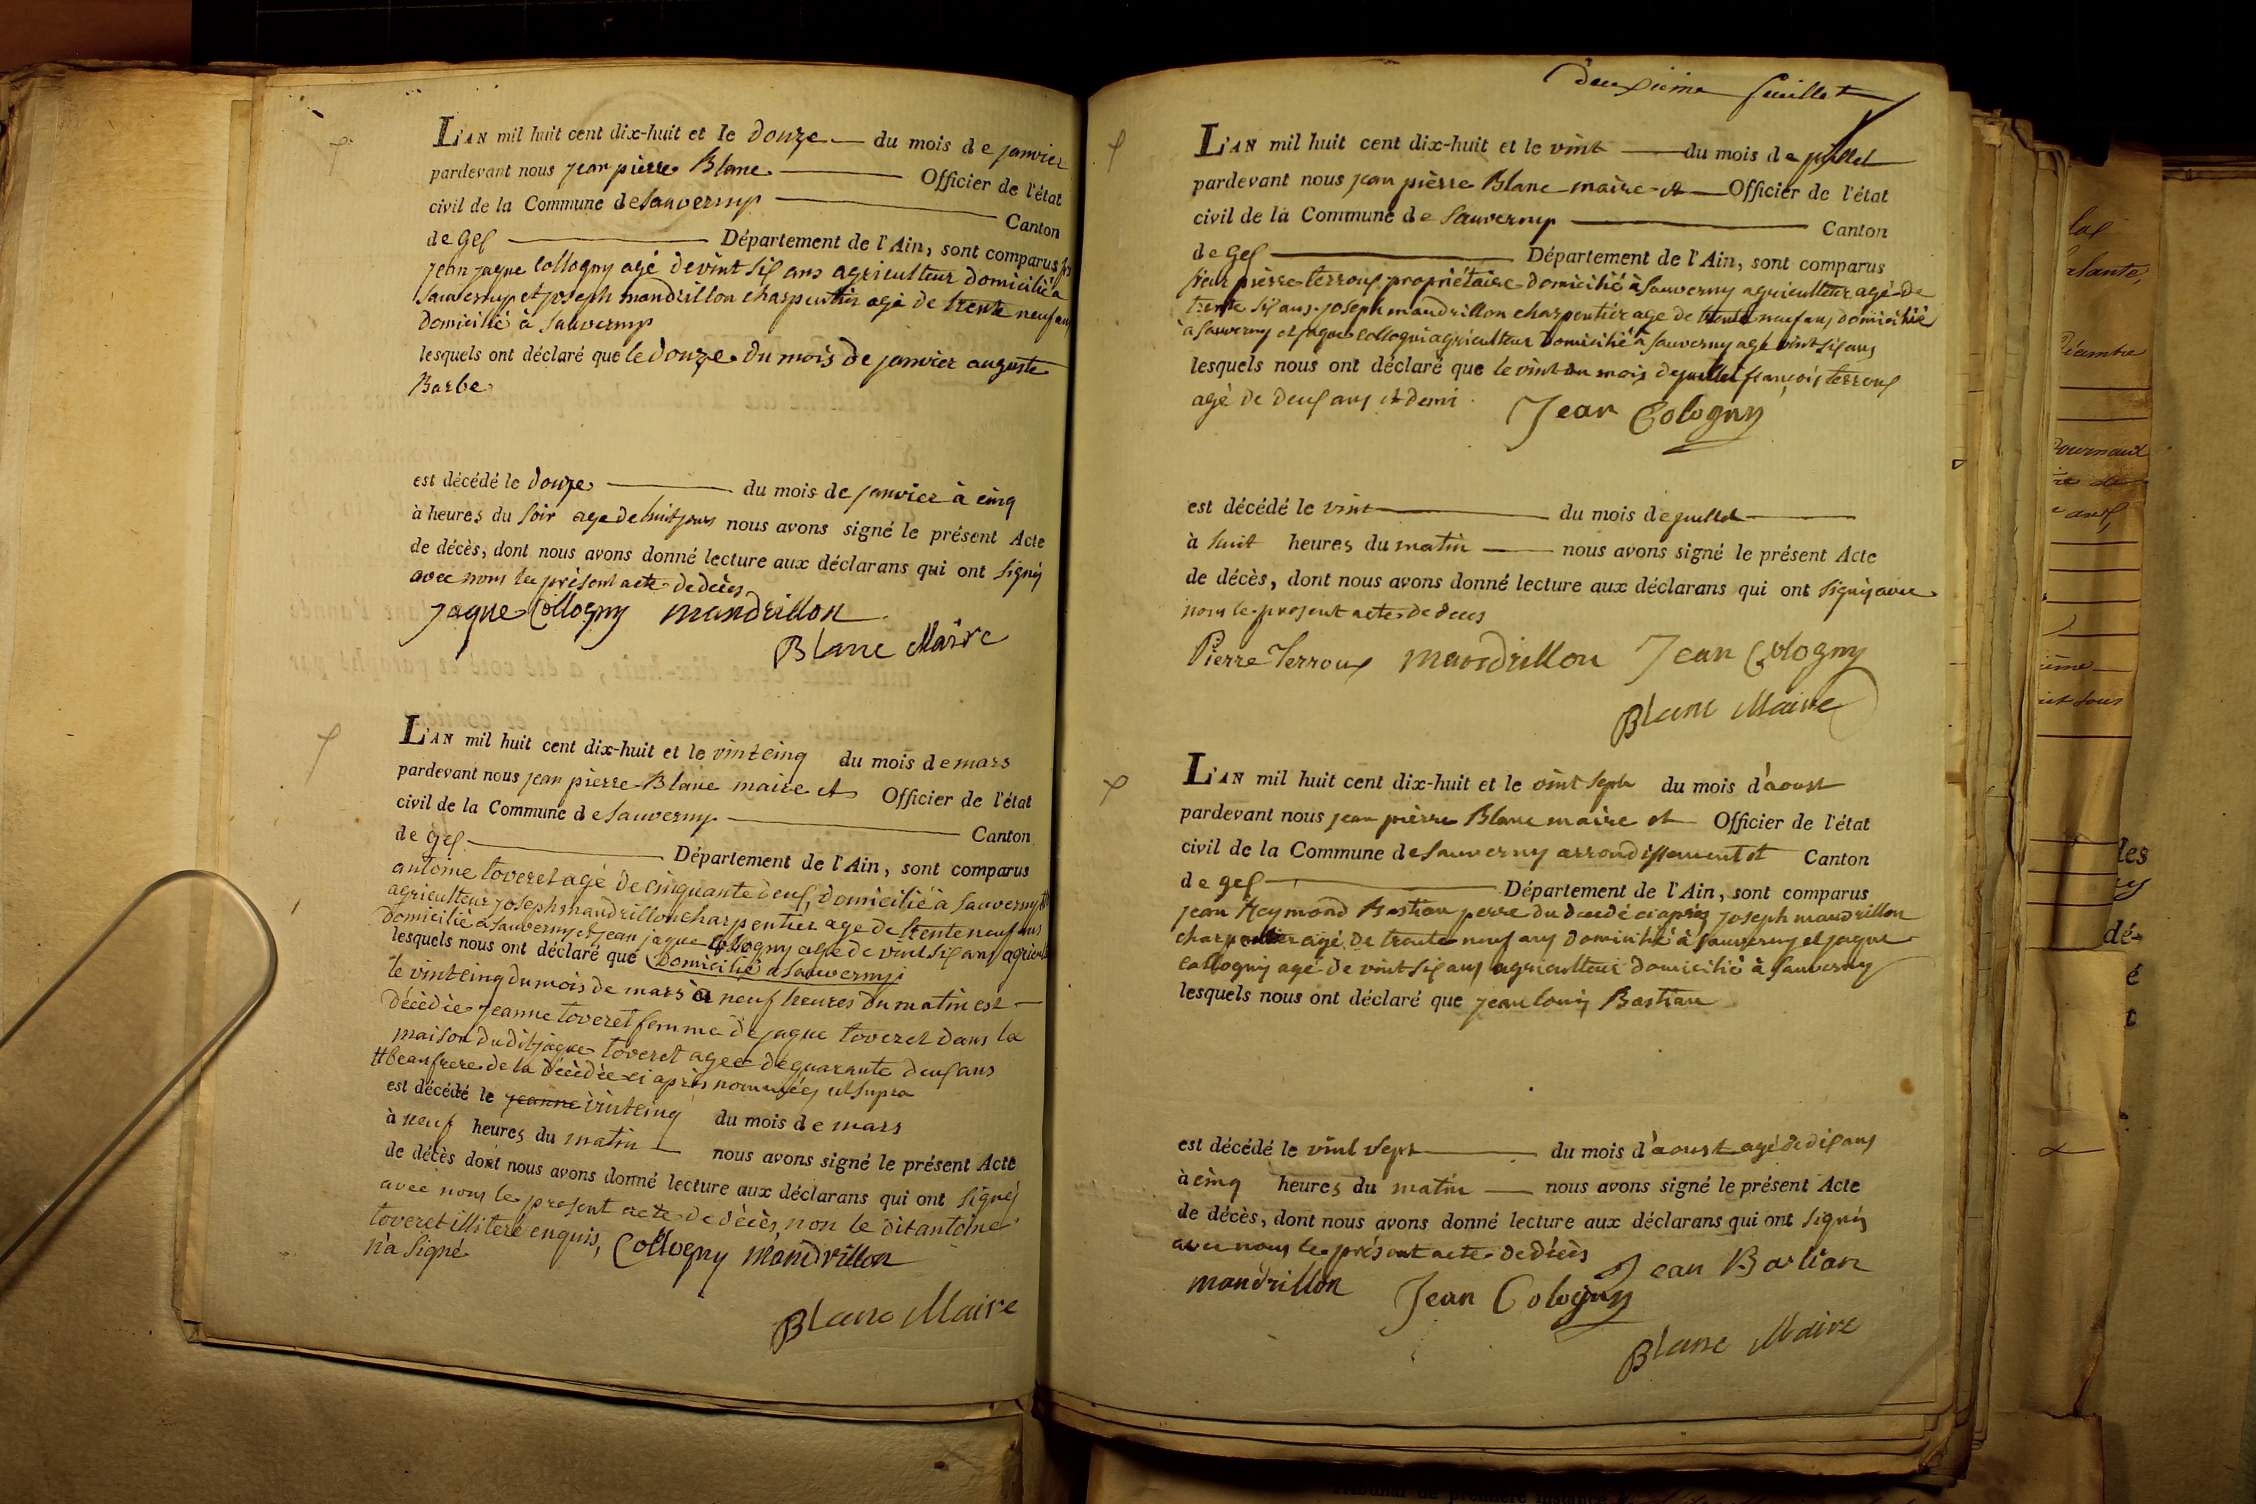 L'AN mil huit cent dix-huit et le douze du mois de janvier
pardevant nous jean pièrre Blanc Officier de l'état
civil de la Commune de Sauverny Canton
de Gex Département de l'Ain, sont comparus
jean jaque Collogny agé de vint six ans agriculteur domicilié a
Sauverny et joseph mandrillon charpentier agé de trente neuf ans
domicilié à Sauverny
lesquels ont déclaré que le douze du mois de janvier auguste
Barbe
est décédé le douze du mois de janvier à cinq
à heures du soir age de huit jours nous avons signé le présent Acte
de décès, dont nous avons donné lecture aux déclarans qui ont signés
avec nous le présent acte de décès
jaque Collogny mandrillon
Blanc Maire
L'AN mil huit cent dix-huit et le vint cinq du mois de mars
pardevant nous jean pierre Blanc maire et Officier de l'état
civil de la Commune de Sauverny Canton
de Gex Département de l'Ain, sont comparus
antoine toveret agé de cinquante deux, domicilié à Sauverny #
agriculteur joseph mandrillon charpentier age de trente neuf ans
domicilié à Sauverny et jean jaque Cologny age de vint six ans agricul
lesquels nous ont déclaré que domicilié a Sauverny
le vint cinq du mois de mars à neuf heures du matin est
décédée jeanne toveret femme de jaque toveret dans la
maison du dit jaque toveret agee de quarante deux ans
# beaufrere de la décèdée ci après nommées ut supra
est décédé le jeanne vint cinq du mois de mars
à neuf heures du matin nous avons signé le présent Acte
de décès dont nous avons donné lecture aux déclarans qui ont signés
avec nous le présent acte de décès, non le dit antoine
toveret illiteré enquis,
n'a signé Collogny mandrillon
Blanc Maire
deuxième feuillet
L'AN mil huit cent dix-huit et le vint du mois de juillet
pardevant nous jean pièrre Blanc maire et Officier de l'état
civil de la Commune de Sauverny Canton
de Gex Département de l'Ain, sont comparus
sieur pièrre terroux propriétaire domicilié à Sauverny agriculteur agé de
trente six ans. joseph mandrillon charpentier age de trente neuf ans domicilié
à Sauverny et jaque Collogni agriculteur domicilié à Sauverny agé vint six ans
lesquels nous ont déclaré que le vint du mois de juillet françois terroux
agé de deux ans et demi
Jean Cologny
est décédé le vint du mois de juillet
à huit heures du matin nous avons signé le présent Acte
de décès, dont nous avons donné lecture aux déclarans qui ont signés avec
nous le present acte de deces
Pierre Terroux mandrillon Jean Cologny
Blanc Maire
L'AN mil huit cent dix-huit et le vint sept du mois d'aoust
pardevant nous jean pièrre Blanc maire et Officier de l'état
civil de la Commune de Sauverny arrondissement et Canton
de gex Département de l'Ain, sont comparus
jean Reymond Bastian pere du decédé ci après joseph mandrillon
charpentier agé de trente neuf ans domicilié à Sauverny et jaque
Collogny agé de vint six ans agriculteur domicilié à Sauverny
lesquels nous ont déclaré que jean louis Bastian
est décédé le vint sept du mois d'aoust agé de dix ans
à cinq heures du matin nous avons signé le présent Acte
de décès, dont nous avons donné lecture aux déclarans qui ont signés
avec nous le présent acte de décès
Jean Bastian
mandrillon Jean Cologny
Blanc Maire